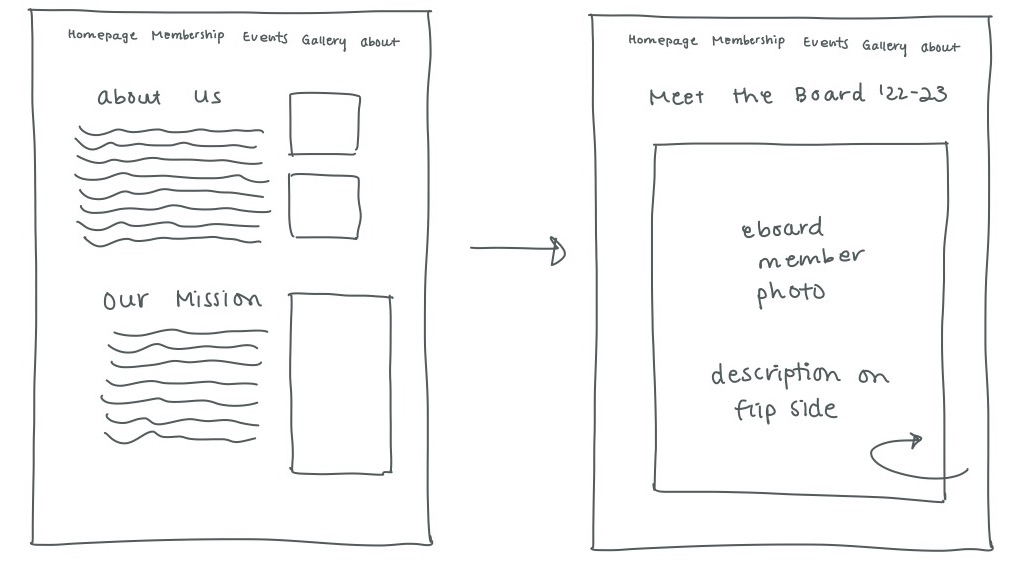 Homepage Membership Events Gallery about
about us
our Mission
Homepage Membership Events Gallery about
Meet the Board '22-23
eboard
member
photo
description on
flip side